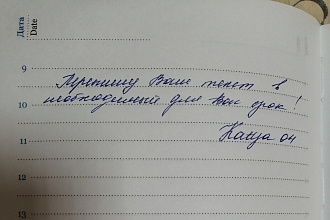 Дата
Date
9
Перепишу Ваш текст в
10
необходимый для Вас срок!
11
Катя 04
12
13